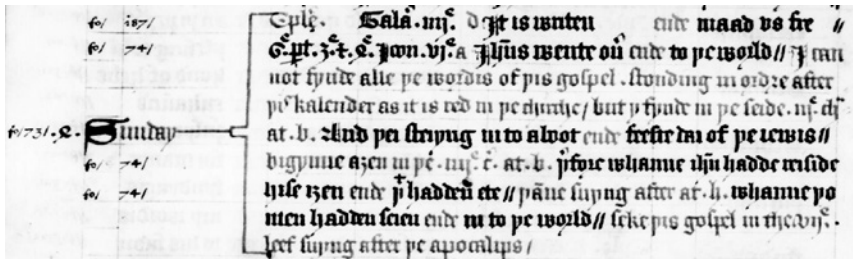 fo/ 187/ Eple. Gala. iiij. d It is writen ende maad vs fre //
fo/ 74/ G. pt. Joon. vj. a Jhūs wente ou ende to þe world // I can
not fynde alle þe wordis of þis gospel . stonding in ordre after
þis kalender as it is red in þe chirche / but y fynde in þe seide . vj. ch
fo/ 73/. Sunday at . b . And þei seiyng in to a boot ende feeste dai of þe iewis //
fo/ 74/ bigynne aȝen in þe . at . b . whanne ihū hadde
fo/ 74/ hise iȝen ende hadden ete // þāne suyng after at . h . whanne þo
men hadden seien ende in to þe world // seke þis gospel in the
leef suyng after þe apocalips /